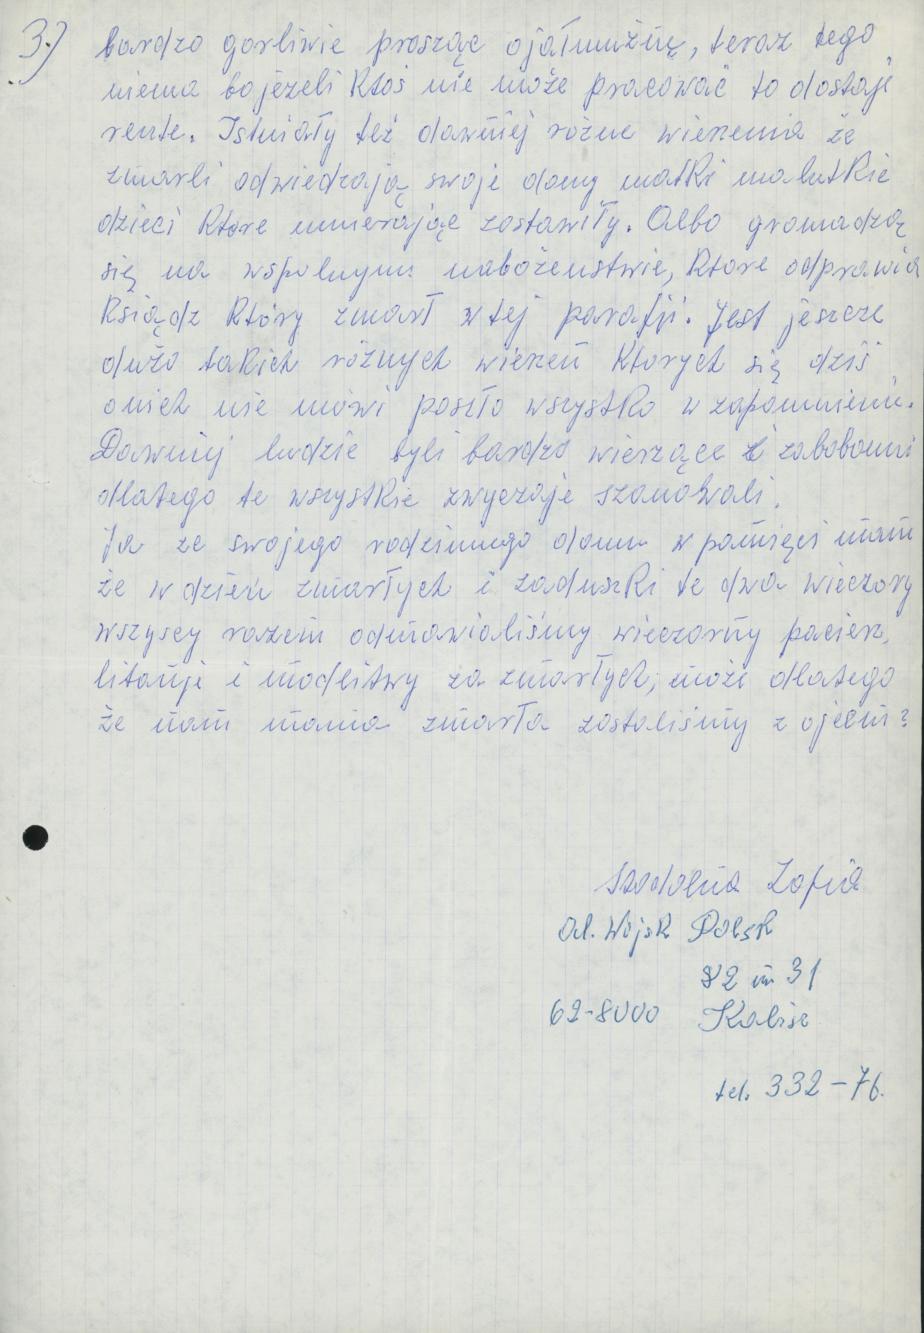 3.)
bardzo gorliwie prosząc ojałmużnę, teraz tego
niema bojeżeli Ktoś nie może pracować to dostaje
rente. Istniały też dawniej różne wierzenia że
zmarli odwiedzają swoje domy matki malutkie
dzieci Ktore umierając zostawiły. Albo gromadzą
się na wspolnym nabożenstwie, Ktore odprawia
Ksiądz Który zmarł w tej parafji. Jest jeszcze
dużo takich różnych wierzeń Ktorych się dziś
onich nie mówi poszło wszystko w zapomnienie.
Dawniej ludzie byli bardzo wierzące i zabobonni
dlatego te wszystkie zwyczaje szanowali.
Ja ze swojego rodzinnego domu w pamięci mam
że w dzień zmarłych i zaduszki te dwa wieczory
wszyscy razem odmawialiśmy wieczorny pacierz,
litanje i modlitwy za zmarłych, może dlatego
że nam mama zmarła zostaliśmy z ojcem?
Zofia
Al. Wojsk Polsk
82 m 31
62-8000 Kalisz
tel. 332-76.